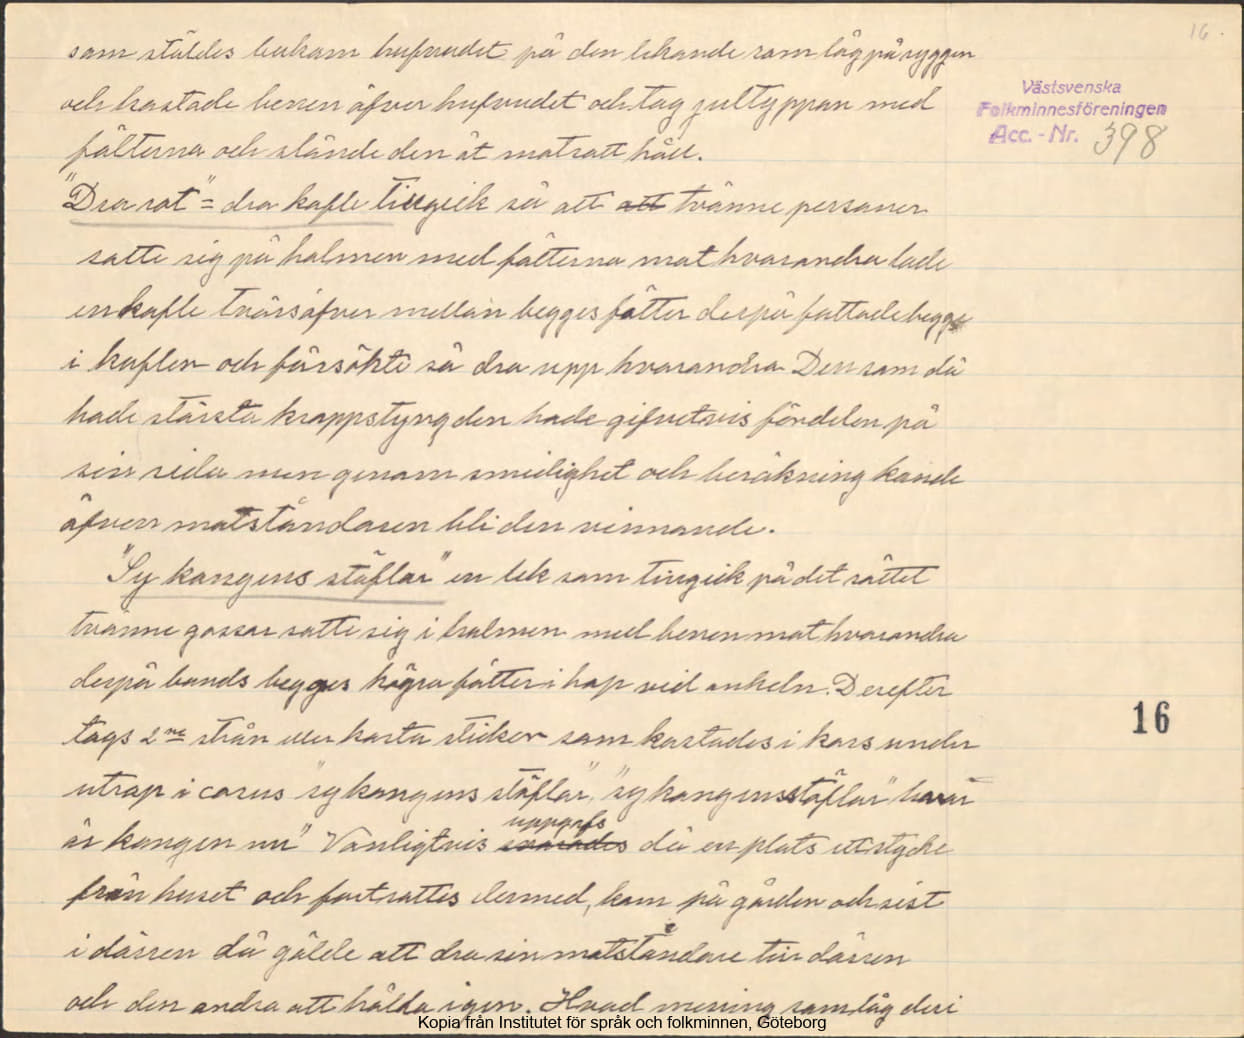 16.
som stäldes bakom hufvudet på den lekande som låg på ryggen
och kastade benen öfver hufvudet och tog jultyppan med
fötterna och slände den åt motsatt håll.
Västsvenska
Folkminnesföreningen
Acc. - Nr. 398
"Dra rot" = dra kafle tillgick så att att tvänne personer
satte sig på halmen med fötterna mot hvarandra lade
en kafle tvärsöfver mellan begges fötter derpå fattade begge
i kaflen och försökte så dra upp hvarandra Den som då
hade största kroppstyngden hade gifvetvis fördelen på
sin sida men genom smidighet och beräkning kunde
äfven motståndaren bli den vinnande.
"Sy kongens stöflar" en lek som tillgick på det sättet
tvänne gossar satte sig i halmen med benen mot hvarandra
derpå bands begges högra fötter i hop vid ankeln. Derefter
togs 2ne strån eller korta stickor som kastades i kors under
utrop i corus "sy kongens stöflar", "sy kongens stöflar" hvar
är kongen nu" Vanligtvis svarades uppgafs då en plats ett stycke
från huset och fortsattes dermed, kom på gården och sist
i dörren då gälde att dra sin motståndare till dörren
och den andra att hålla igen. Hvad mening som låg deri
16
Kopia från Institutet för språk och folkminnen, Göteborg